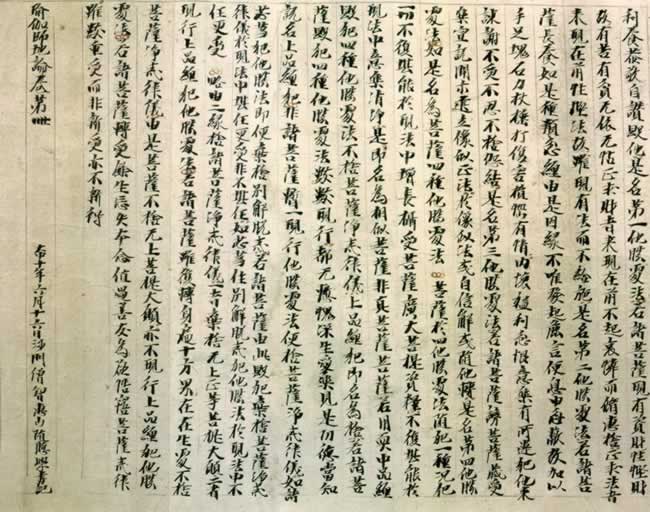 利養恭敬自讚毀他是名第一他勝處法若諸菩薩現有資財性慳財
故有苦有貧无依无怙正求財者來現在前不起哀憐而修惠捨正求法者
來現在前性慳法故雖現有法而不給施是名第二他勝處法若諸菩
薩長養如是種類忿纏由是因緣不唯發起麁言便息由忿蔽故加以
手足塊石刀杖捶打傷害損惱有情內懷猛利忿恨意樂有所違犯他來
諫謝不受不忍不捨怨結是名第三他勝處法若諸菩薩謗菩薩藏愛
樂宣說開示建立像似正法於像似法或自信解或隨他轉是名第四他勝
處法如是名為菩薩四種他勝處法 菩薩於四他勝處法隨犯一種況犯
一切不復堪能於現法中增長攝受菩薩廣大菩提資糧不復堪能於
現法中意樂清淨是即名為相似菩薩非真菩薩菩薩若用耎中品纏
毀犯四種他勝處法不捨菩薩淨戒律儀上品纏犯即名為捨若諸菩
薩毀犯四種他勝處法數數現行都无慚愧深生愛樂見是功德當知
說名上品纏犯非諸菩薩暫一現行他勝處法便捨菩薩淨戒律儀如諸
苾芻犯他勝法即便棄捨別解脫戒若諸菩薩由此毀犯棄捨菩薩淨戒
律儀於現法中堪任更受非不堪任如苾芻住別解脫戒犯他勝法於現法中不
任更受 略由二緣捨諸菩薩淨戒律儀一者棄捨无上正等菩提大願二者
現行上品纏犯他勝處法若諸菩薩雖復轉身遍十方界在在生處不捨
菩薩淨戒律儀由是菩薩不捨无上菩提大願亦不現行上品纏犯他勝
處法若諸菩薩轉受餘生忘失本念值遇善友為欲覺寤菩薩戒念
雖數重受而非新受亦不新得
瑜伽師地論卷第卌
大中十年六月十六日沙門僧智惠山隨聽學書記